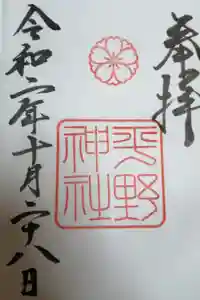 奉拝
平野
神社
令和二年十月二十八日